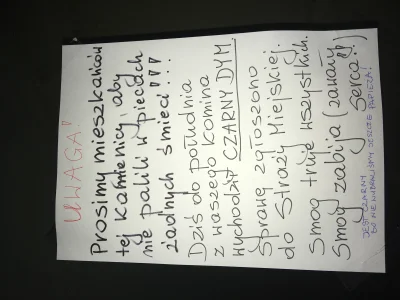 UWAGA!
Prosimy mieszkańców
tej kamienicy, aby
nie palili w piecach
żadnych śmieci!!!
Dziś do południa
z waszego komina
wychodził CZARNY DYM.
Sprawę zgłoszono
do Straży Miejskiej.
Smog truje wszystkich.
Smog zabija (zawały
serca!!)
JEST CZARNY
BO NIE WYBRALIŚMY JESZCZE PAPIEŻA!